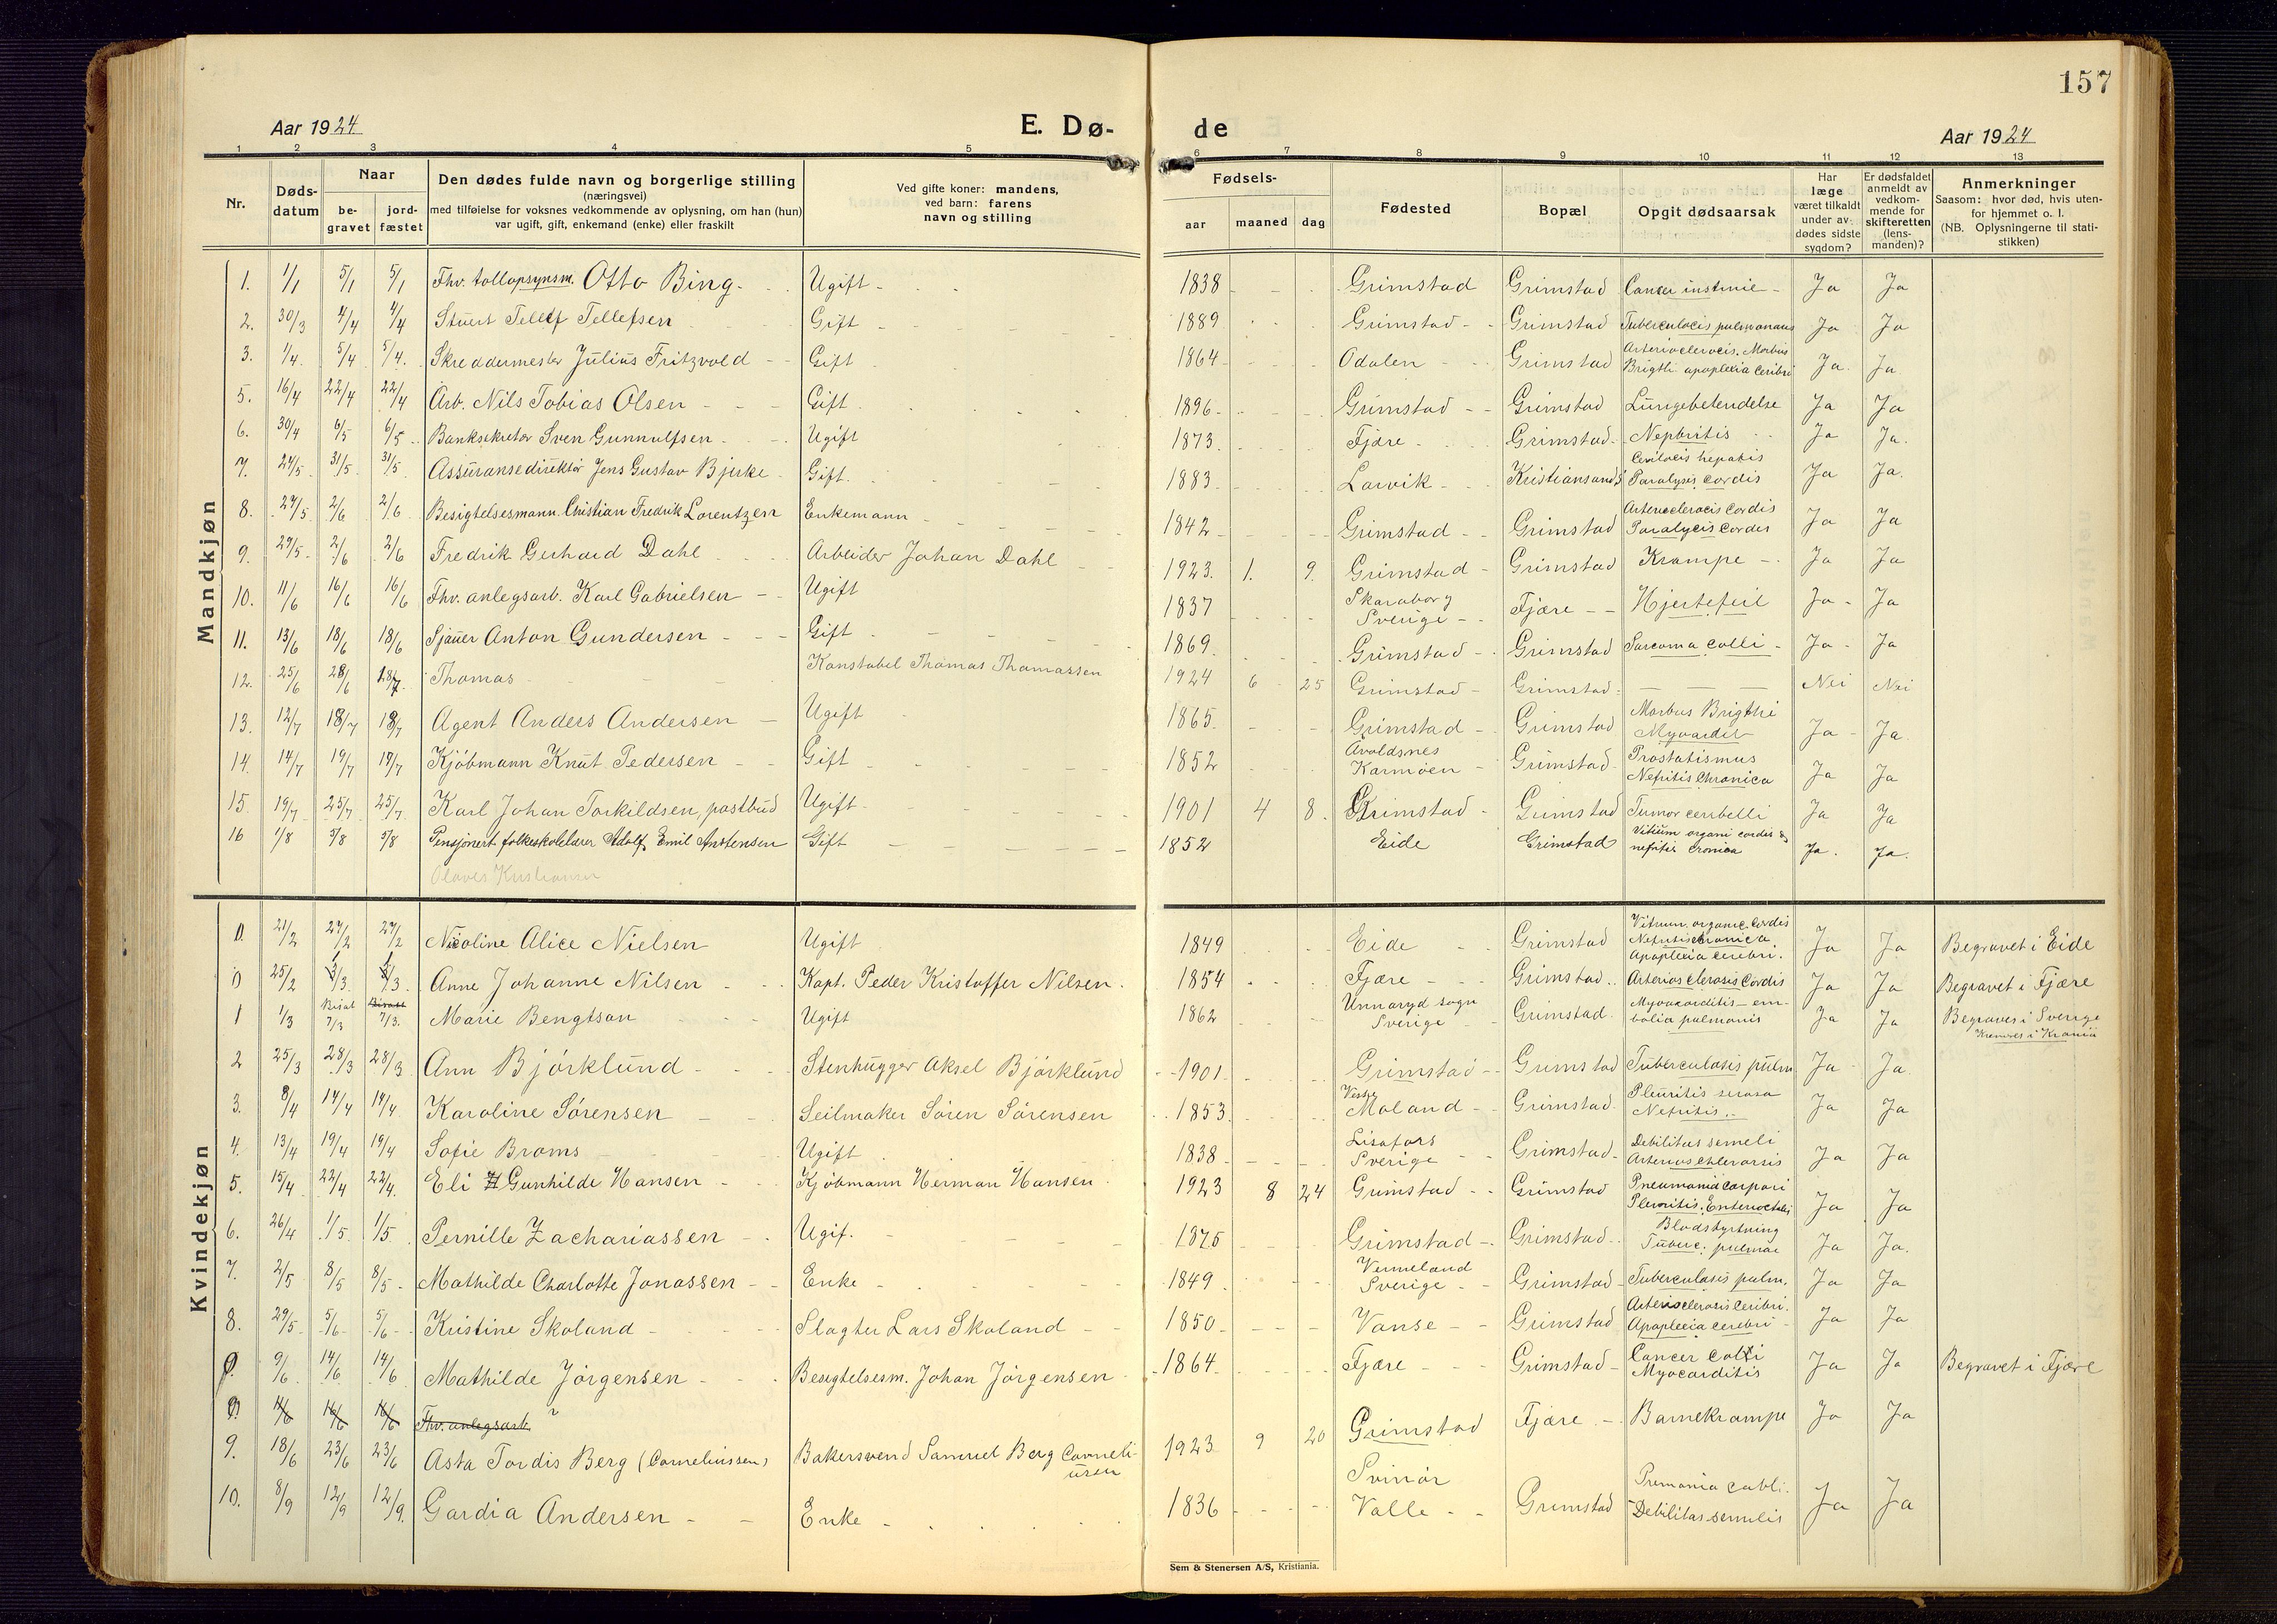 157
Aar 1924
E. Dø-
de
Aar 1924
1 2 3 4 5 6 7 8 9 10 11 12 13
Nr.
Døds-
datum
Naar
be-
gravet
jord-
fæstet
Den dødes fulde navn og borgerlige stilling
(næringsvei)
med tilføielse for voksnes vedkommende av oplysning, om han (hun)
var ugift, gift, enkemand (enke) eller fraskilt
Ved gifte koner: mandens,
ved barn: farens
navn og stilling
Fødsels-
aar
maaned
dag
Fødested
Bopæl
Opgit dødsaarsak
Har
læge
været tilkaldt
under av-
dødes sidste
sygdom?
Er dødsfaldet
anmeldt av
vedkom-
mende for
skifteretten
(lens-
manden)?
Anmerkninger
Saasom: hvor død, hvis uten-
for hjemmet o. l.
(NB. Oplysningerne til stati-
stikken)
Mandkjøn
1. 1/1 5/1 5/1 Fhv. tollopsynsm. Otto Bing Ugift 1838 Grimstad Grimstad Cancer Ja Ja
2. 30/3 4/4 4/4 Stuert Tellef Tellefsen Gift 1889 Grimstad Grimstad Tuberculocis pulmonaus Ja Ja
3. 1/4 5/4 5/4 Skreddermester Julius Fritzvold Gift 1864 Odalen Grimstad Arterioclerocis. Morbus
Brigthi apoplexia ceribri Ja Ja
5. 16/4 22/4 22/4 Arb. Nils Tobias Olsen Gift 1896 Grimstad Grimstad Lungebetendelse Ja Ja
6. 30/4 6/5 6/5 Banksekretær Sven Gunnulfsen Ugift 1873 Fjære Grimstad Nephritis Ja Ja.
7. 24/5 31/5 31/5 Assuransedirektør Jens Gustav Bjerke Gift 1883 Larvik Kristiansand S hepatis
Paralysis cordis Ja Ja.
8. 27/5 2/6 2/6 Besigtelsesmann Christian Fredrik Lorentzen Enkemann 1842 Grimstad Grimstad Arterioclerocis Cordis
Paralycis Cordis Ja Ja
9. 29/5 2/6 2/6 Fredrik Gerhard Dahl Arbeider Johan Dahl 1923. 1. 9. Grimstad Grimstad Krampe Ja Ja
10. 11/6 16/6 16/6 Fhv. anlegsarb. Karl Gabrielsen Ugift 1837 Skaraborg
Sverige Fjære Hjertefeil Ja Ja
11. 13/6 18/6 18/6 Sjauer Anton Gundersen Gift 1869. Grimstad Grimstad Sarcoma colli Ja Ja
12. 25/6 28/6 18/7 Thomas Konstabel Thomas Thomassen 1924 6 25 Grimstad Grimstad Nei Nei
13. 12/7 18/7 18/7 Agent Anders Andersen Ugift 1865. Grimstad Grimstad Morbus Brigthi
Myocardit Ja Ja
14. 14/7 19/7 19/7 Kjøbmann Knut Pedersen Gift 1852 Avoldsnes
Karmøen Grimstad Prostatismus
Nefritis Chronica Ja Ja
15. 19/7 25/7 25/7 Karl Johan Torkildsen, postbud Ugift 1901 4 8. Grimstad Grimstad Tumor ceribelli Ja Ja
16 1/8 5/8 5/8 Pensjonert folkeskolelærer Adolf Emil Anstensen Gift 1852 Eide Grimstad Vitium organi cordis &
nefritis cronica Ja. Ja.
Olaves Kristiansen
Kvindekjøn
0. 21/2 27/2 27/2 Nicoline Alice Nielsen Ugift 1849 Eide Grimstad Vitium organic Cordis
Nefritis chronica
Apoplexia cerebri. Ja Ja Begravet i Eide
0 25/2 /3 /3 Anne Johanne Nilsen Kapt. Peder Kristoffer Nilsen. 1854 Fjære Grimstad Arteriosclerosis Cordis Ja Ja Begravet i Fjære
1 1/3 Bisat
7/3 Bisatt
7/3. Marie Bengtson Ugift 1862 Unnaryd sogn
Sverige Grimstad Myocarditis – em-
bolia pulmonis Ja Ja Begraves i Sverige
Kremeres i Krania
2 25/3 28/3 28/3 Ann Bjørklund Stenhugger Aksel Bjørklund 1901 Grimstad Grimstad Tuberculosis pulm Ja Ja
3. 8/4 14/4 14/4 Karoline Sørensen Seilmaker Søren Sørensen 1853 Vestre
Moland Grimstad Pleuritis serosa
Nefritis. Ja Ja
4. 13/4 19/4 19/4 Sofie Broms Ugift 1838 Lisafors
Sverige Grimstad Debilitas semeli
Arteriosclerorsis Ja Ja
5. 15/4 22/4 22/4. Eli Gunhilde Hansen Kjøbmann Herman Hansen 1923 8 24 Grimstad Grimstad Pneumonia
Pleuritis. Ja Ja
6. 26/4 1/5 1/5 Pernille Zachariassen Ugif. 1875 Grimstad Grimstad Blodstyrtning
Tuberc. pulmae Ja Ja.
7. 2/5 8/5 8/5 Mathilde Charlotte Jonassen Enke 1849 Vermeland
Sverige Grimstad Tuberculosis pulm. Ja Ja
8. 29/5 5/6 5/6 Kristine Skoland Slagter Lars Skoland 1850 Vanse Grimstad Arterisclerosis ceribri.
Apoplexia cerebri Ja Ja
0. 9/6 14/6 14/6 Mathilde Jørgensen Besigtelsesm. Johan Jørgensen 1864 Fjære Grimstad Cancer colli
Myocarditis Ja Ja Begravet i Fjære
9. 11/6 16/6 16/6 Fhv. anlegsarb.
9. 18/6 23/6 23/6 Asta Tordis Berg (Corneliussen) Bakersvend Samuel Berg Corneli-
usen 1923 9 20 Grimstad Fjære Barnekrampe Ja Ja
10. 8/9 12/9 12/9. Gardia Andersen Enke 1836 Svinør
Valle Grimstad
Debilitas semilis Ja Ja
Sem & Stenersen A/S, Kristiania.